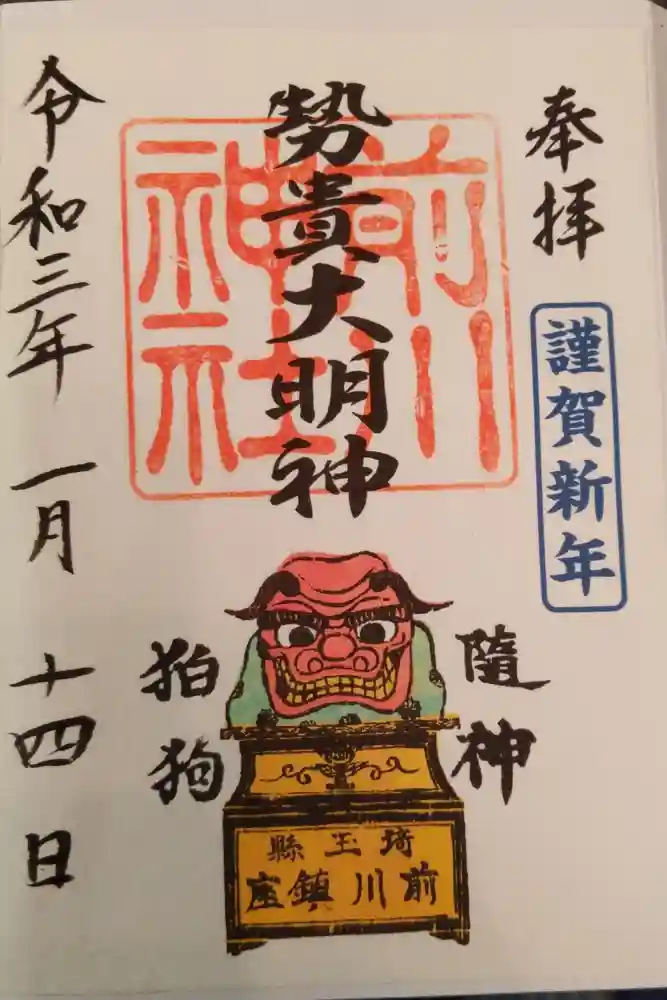 奉拝
謹賀新年
前川
神社
勢貴大明神
隨神
狛狗
埼玉縣
前川鎮座
令和三年 一月 十四日